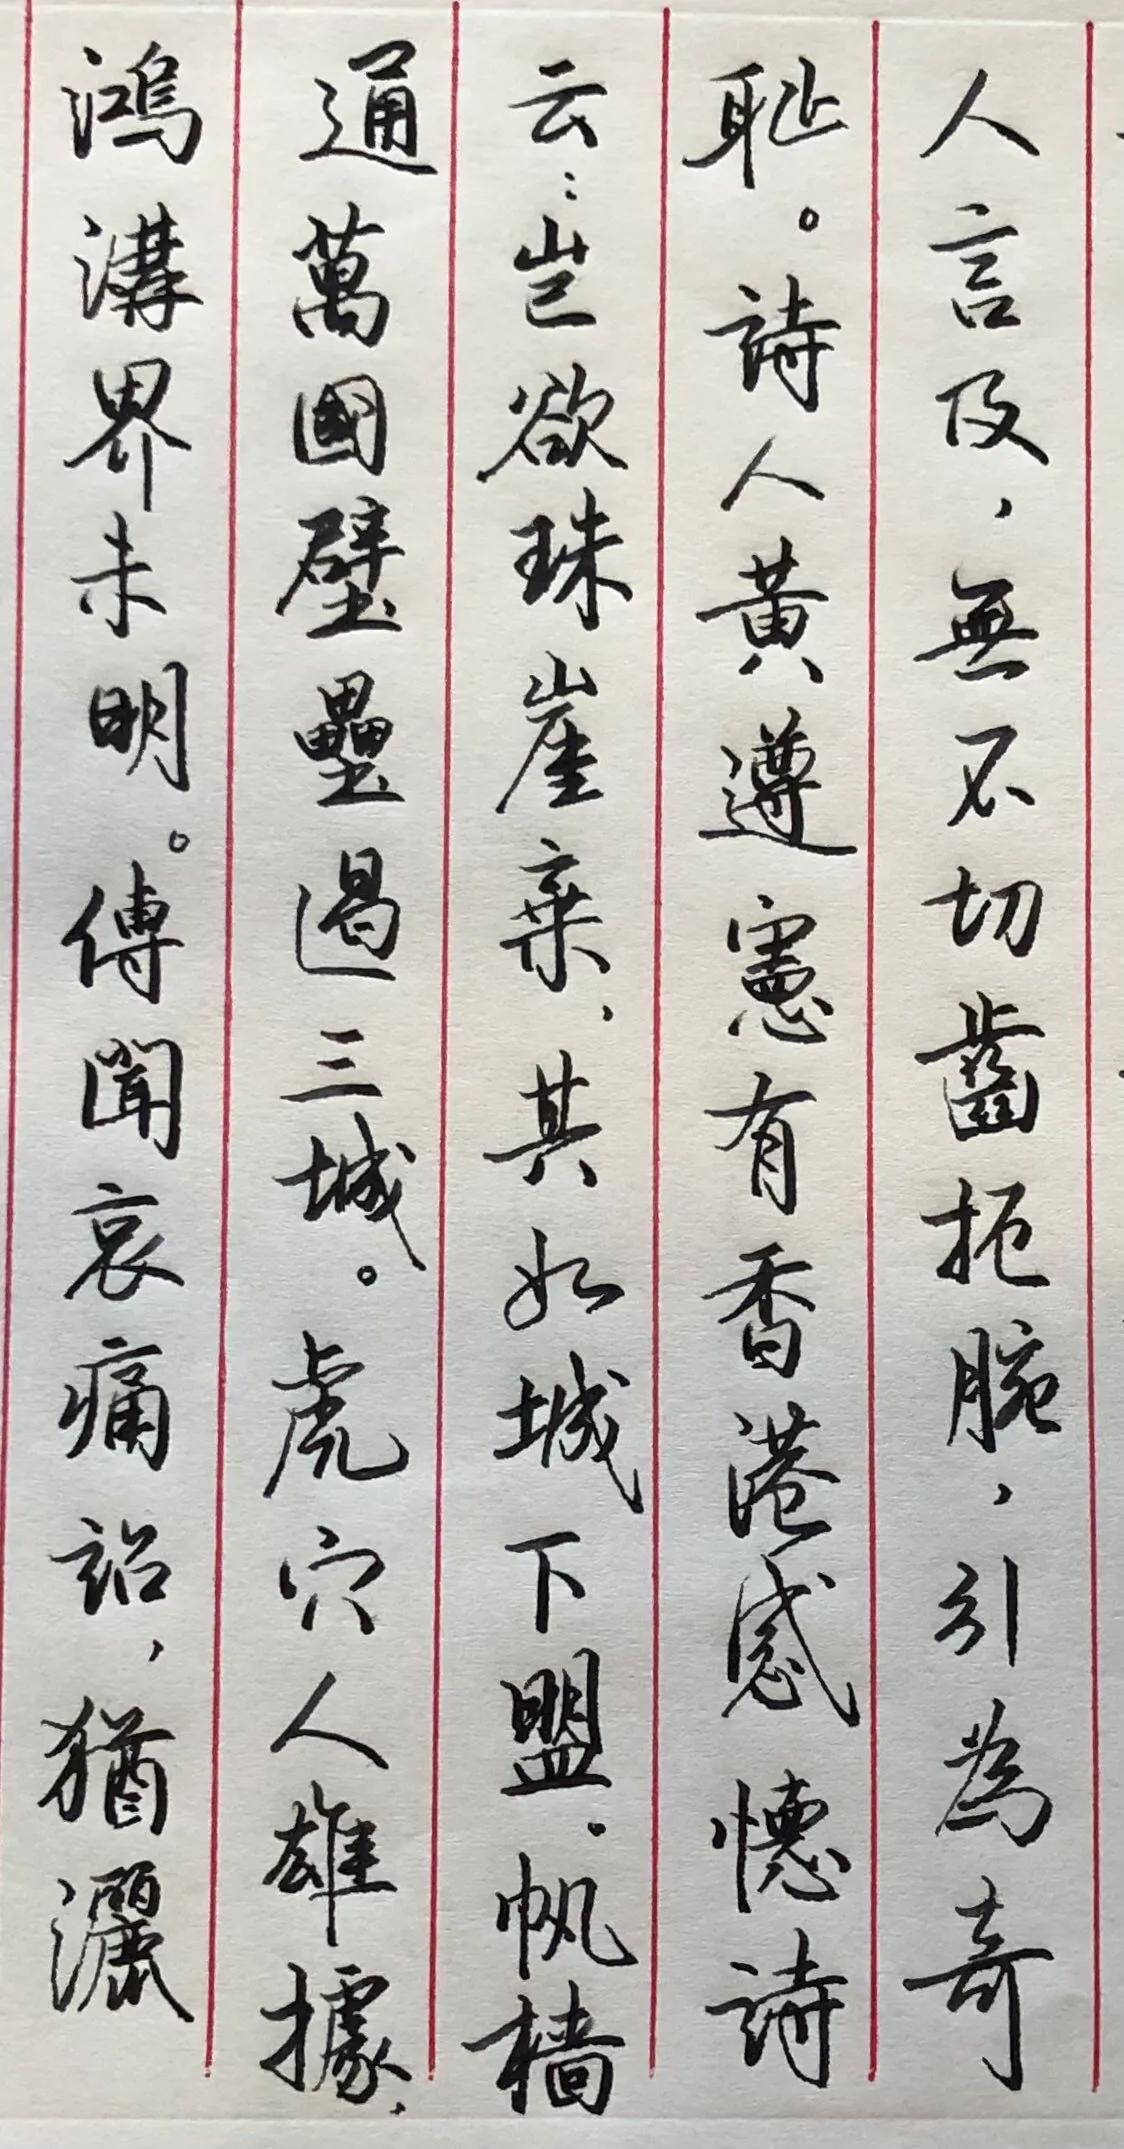 人言及，無不切齒扼腕，引為奇
耻。詩人黃遵憲有香港感懷詩
云：豈欲珠崖棄，其如城下盟。帆檣
通萬國，壁壘逼三城。虎穴人雄據，
鴻溝界未明。傳聞哀痛詔，猶灑